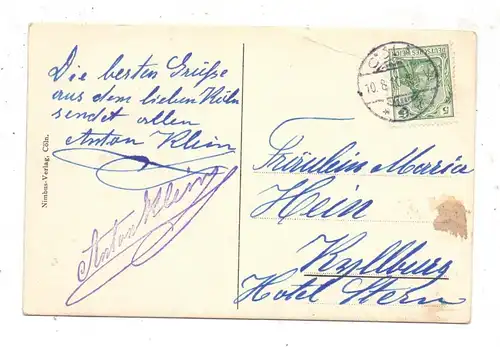 Die besten Grüße
aus dem lieben Köln
sendet allen
Anton Klein
Anton Klein
Nimbus-Verlag, Cöln.
CÖLN
10.6
DEUTSCHES REICH
5
5
Fräulein Maria
Hein
Kyllburg
Hotel Stern